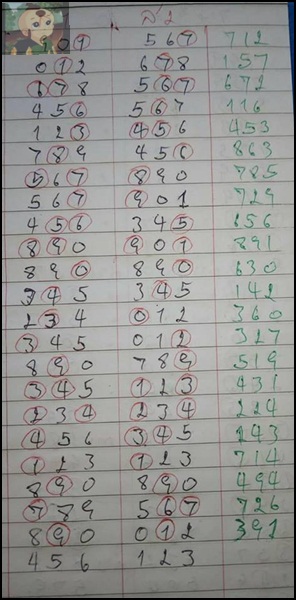 ส2
901 567 712
012 678 157
678 567 672
456 567 116
123 456 453
789 456 863
567 890 785
567 901 729
456 345 156
890 901 891
890 890 630
345 345 142
234 012 360
345 012 327
890 789 519
345 123 431
234 234 224
456 345 243
123 123 714
890 890 494
789 567 726
890 012 391
456 123